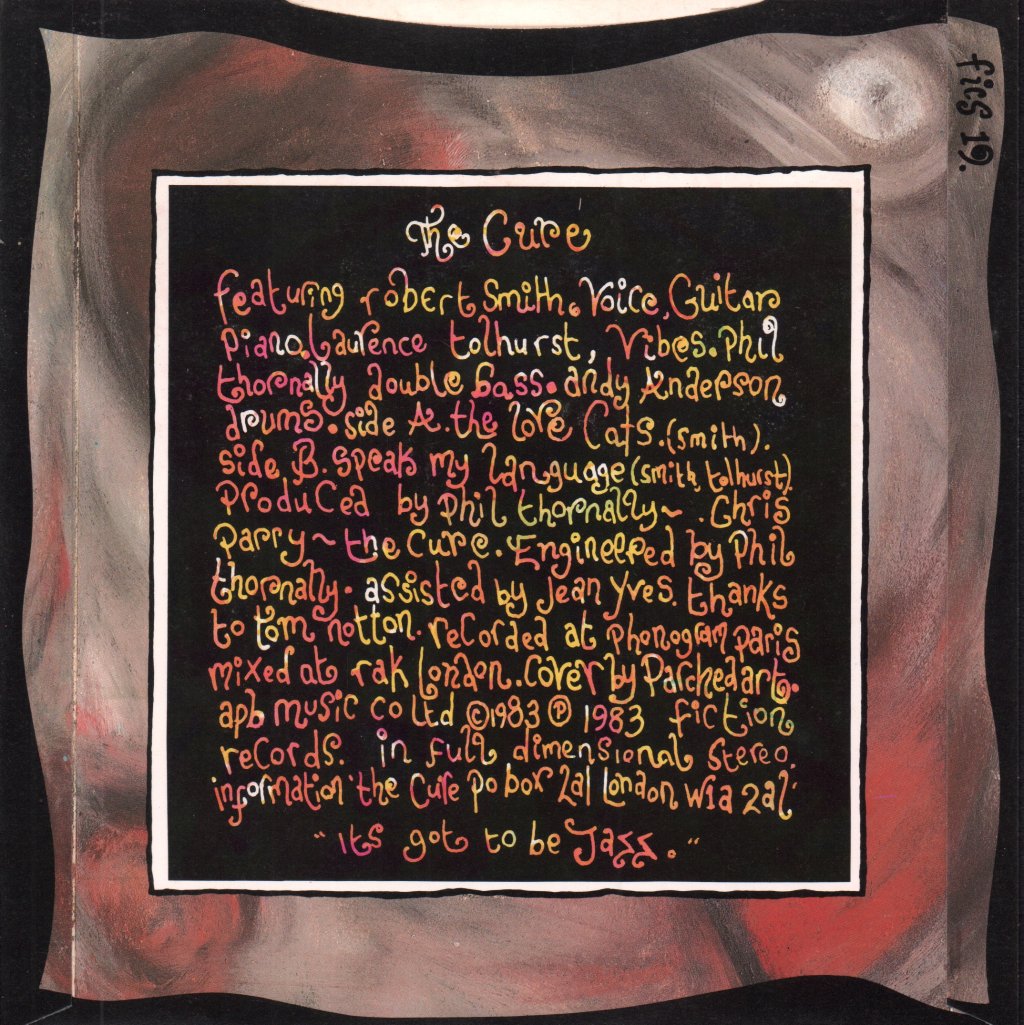 The Cure
featuring robert Smith. Voice, Guitar
piano. Laurence tolhurst, Vibes. phil
thornally double bass. andy Anderson
drums. side A. the love Cats. (smith).
side B. speak my langugge (smith, tolhurst).
produced by phil thornally ~ . Chris
parry ~ the Cure. Engineered by phil
thornally. assisted by Jean Yves. thanks
to tom notton. recorded at phonogram paris
mixed at rak london. Cover by Parchedart.
apb music co Ltd ©1983 ℗ 1983 fiction
records. in full dimensional Stereo.
information the Cure po box 2al london w1a 2al
"its got to be Jazz."
fics 19.